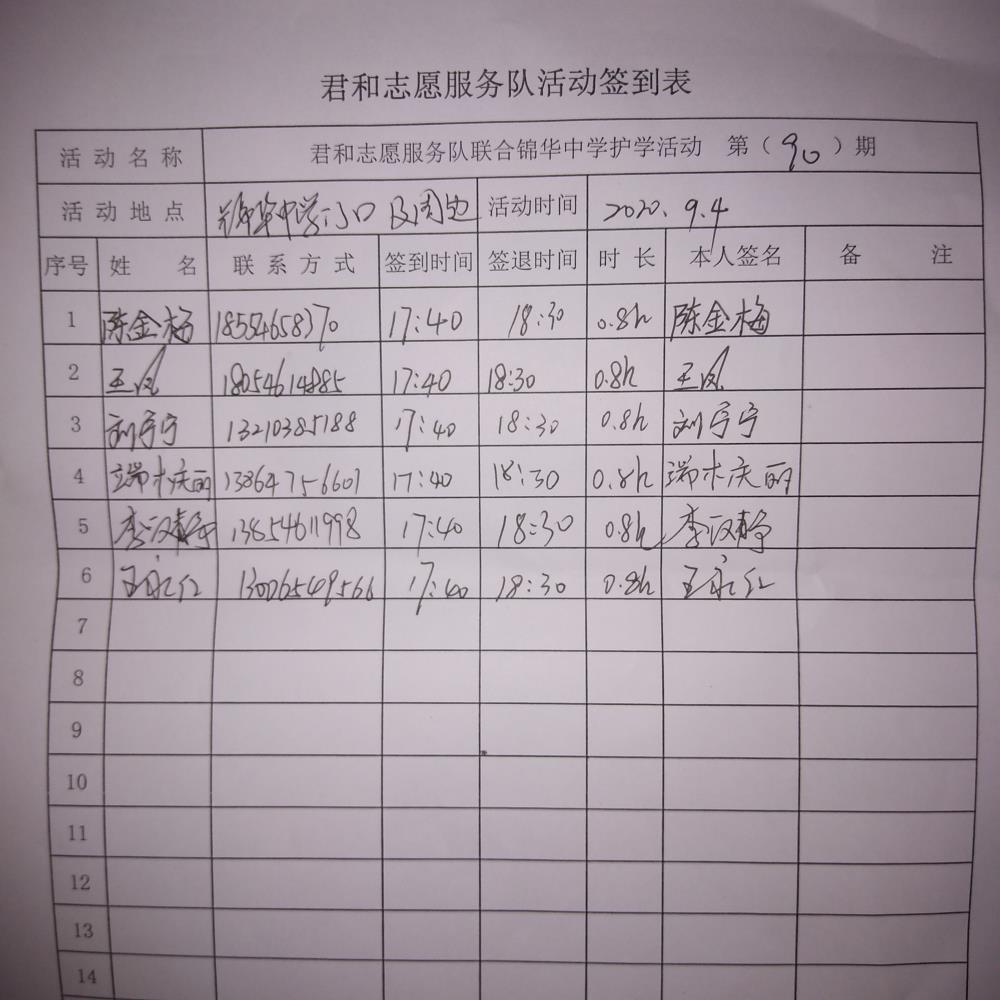 君和志愿服务队活动签到表
活动名称 君和志愿服务队联合锦华中学护学活动 第（90）期
活动地点 锦华中学门口及周边 活动时间 2020.9.4
序号 姓名 联系方式 签到时间 签退时间 时长 本人签名 备注
1 陈金梅 18554658370 17:40 18:30 0.8h 陈金梅
2 王凤 18054614885 17:40 18:30 0.8h 王凤
3 刘宁宁 13210385188 17:40 18:30 0.8h 刘宁宁
4 端木庆丽 13864756601 17:40 18:30 0.8h 端木庆丽
5 李汉静 13854611998 17:40 18:30 0.8h 李汉静
6 王永红 13006549566 17:40 18:30 0.8h 王永红
7
8
9
10
11
12
13
14